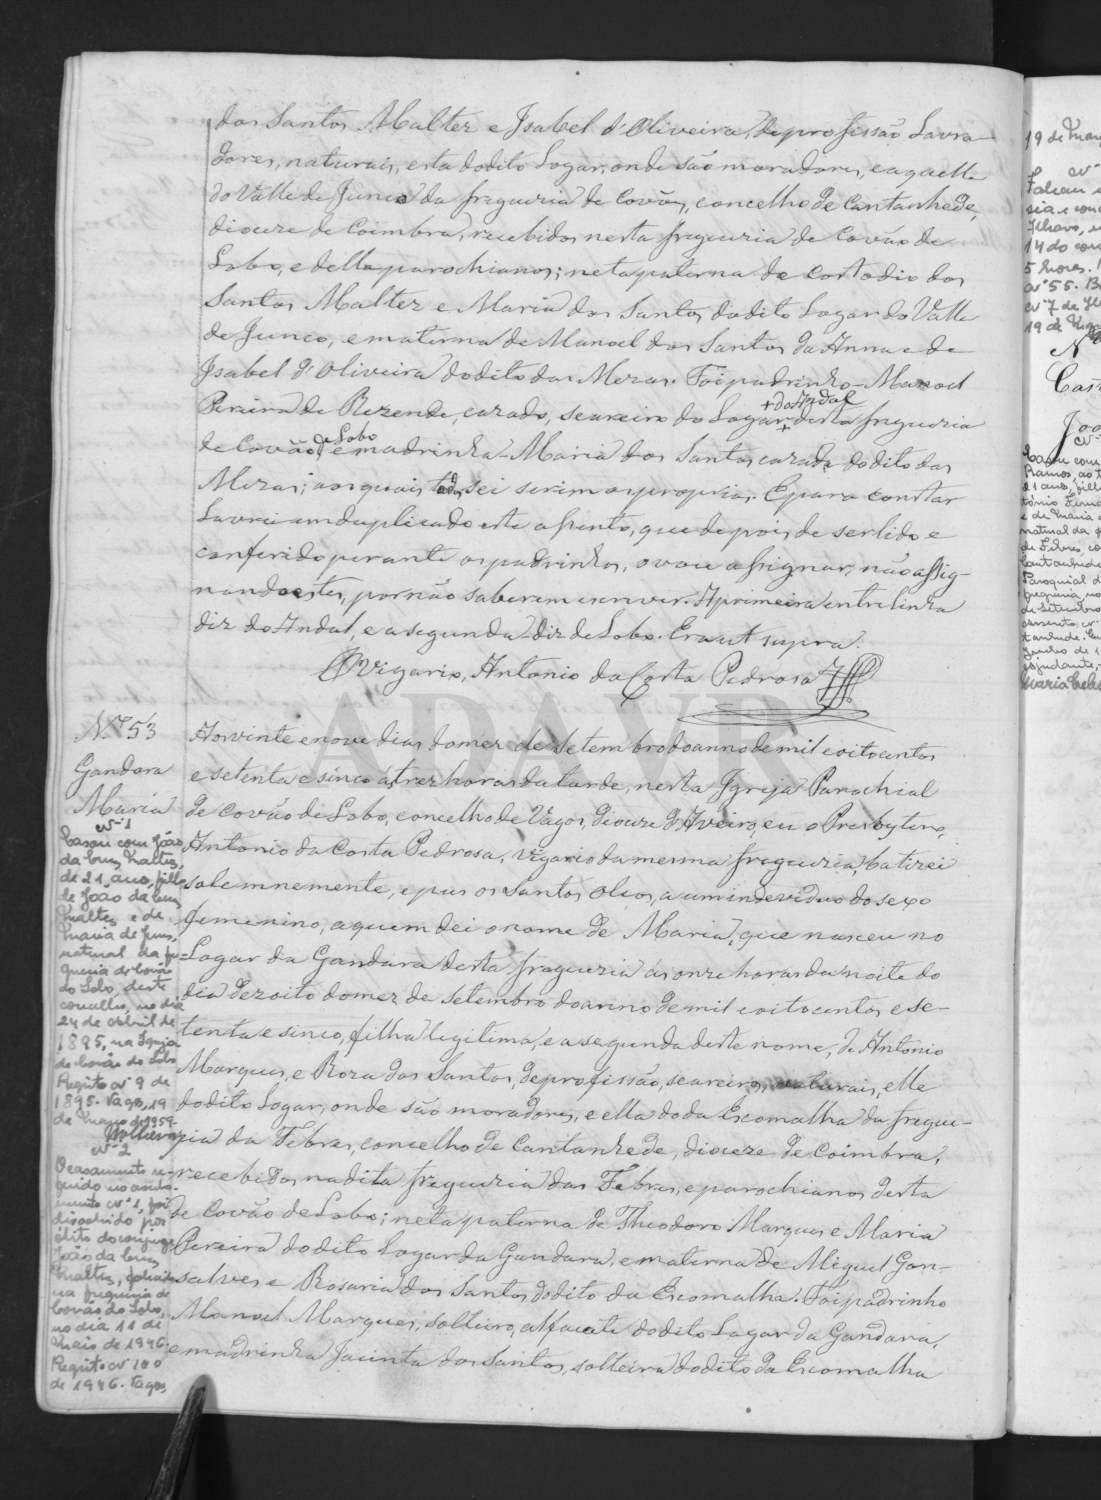 dos Santos Malter e Isabel d'Oliveira, de profissão Lavra-
dores, naturais, esta do dito Logar, onde são moradores, e aquelle
do Valle de Junco da freguezia de Covões, concelho de Cantanhede,
diocese de Coimbra, recebidos nesta freguezia de Covão de
Lobo, e della parochianos; neta paterna de Costodio dos
Santos Malter e Maria dos Santos do dito Logar do Valle
de Junco, e materna de Manoel dos Santos da Anna e de
Isabel d'Oliveira do dito das Mezas. Foi padrinho - Manoel
+ do Andal
Pereira de Rezende, cazado, seareiro do Logar + desta freguezia
de Lobo
de Covão, e madrinha - Maria dos Santos cazada do dito das
Mezas; aos quais todos sei serem os proprios. E para constar
Lavrei em duplicado este assento, que depois de ser lido e
conferido perante os padrinhos, o vou assignar, não assig-
nando estes, por não saberem escrever. A primeira entrelinha
diz do Andal, e a segunda diz de Lobo. Era ut supra.
O Vigario, Antonio da Costa Pedrosa
ADAVR
N.º 53
Gandara
Maria
Aos vinte e nove dias do mez de Setembro do anno de mil e oitocentos
e setenta e sinco, ás trez horas da tarde, nesta Igreja Parochial
de Covão de Lobo, concelho de Vagos, diocese d'Aveiro, eu o Presbytero,
Antonio da Costa Pedrosa, vigario da mesma freguezia, batizei
solemnemente, e pus os Santos Oleos, a um individuo do sexo
femenino, a quem dei o nome de Maria, que nasceu no
Logar da Gandara desta freguezia ás onze horas da noite do
dia dezoito do mez de Setembro do anno de mil e oitocentos e se-
tenta e sinco, filha legitima, e a segunda deste nome, de Antonio
Marques, e Roza dos Santos, de profissão, seareiros, naturais, elle
do dito Logar, onde são moradores, e ella do da Escomalha da fregue-
zia da Febres, concelho de Cantanhede, diocese de Coimbra,
recebidos na dita freguezia das Febres, e parochianos desta
de Covão de Lobo; neta paterna de Theodoro Marques e Maria
Pereira do dito Logar da Gandara, e materna de Miguel Gon-
salves e Rosaria dos Santos do dito da Escomalha. Foi padrinho
Manoel Marques, solteiro, alfaiate do dito Logar da Gandara,
e madrinha Jacinta dos Santos, solteira do dito da Escomalha
Nº 1
Casou com João
da Cruz Maltez,
de 21 anos, filho
de João da Cruz
Maltez e de
Maria de Jesus,
natural da fre-
guesia de Covão
do Lobo, deste
concelho, no dia
24 de Abril de
1895, na Igreja
de Covão do Lobo
Registo nº 9 de
1895. Vagos, 19
de Março de 1957.
Nº 2
O casamento re-
ferido no averba-
mento nº 1, foi
dissolvido por
óbito do conjuge
João da Cruz
Maltez, falecido
na freguesia de
Covão do Lobo,
no dia 11 de
Maio de 1946.
Registo nº 100
de 1946. Vagos
19 de
5 horas.
Nº 55.
Nº 7 de
19 de
Ramos,
21 anos, filh
natural da
de Febres, co
Paroquial d
de Setembro
ajudante,